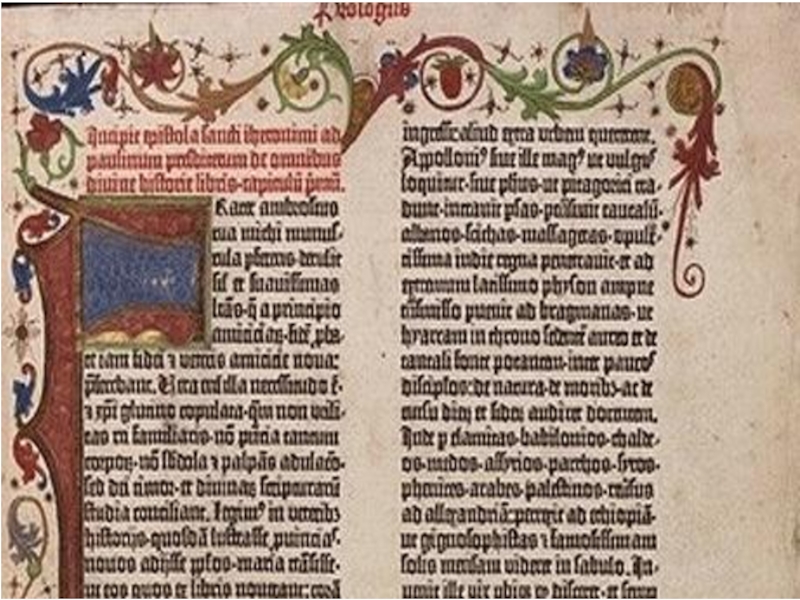 Prologus
Incipit epistola sancti iheronimi ad
paulinum presbiterum de omnibus
divine historie libris·capitulū prīmū.
Frater ambrosius
tua michi munus-
cula pferens·detulit
sil et suavissimas
lrās·q̄ a principio
amiciciaȝ·fidē pba-
te iam fidei ⁊ veteris amicicie noua:
pferebant. Vera enī illa necessitudo ē·
⁊ xpī glutino copulata·qm non utili-
tas rei familiaris·nō pntia tantum
corporꝝ·nō sbdola ⁊ palpās adulacō·
sed dei timor·et diuinaꝝ scripturarū
studia conciliant. Legimꝰ in veterib3
historijs·quosdā lustrasse puincias·
nouos adijsse pplos·maria trāsisse·
ut eos quos ex libris nouerant: corā
ingressꝰ·aliud extra urbem quererent.
Appolloniꝰ siue ille magꝰ ut vulgus
loquitur·siue phus·ut pitagorici tra-
dunt·intrauit psas·ptrāsiuit caucasū·
albanos·scithas·massagetas·opulē-
tissima indie regna penetrauit·et ad
extremum latissimo physon ampne
trāsmisso puenit ad bragmanas·ut
hyarcam in throno sedentē aureo et de
tantali fonte potantem·inter paucos
discipulos·de natura·de moribꝫ·ac de
cursu dieꝝ et sideꝝ audiret docentem.
Inde p elamitas·babilonios·chalde-
os·medos·assyrios·parthos·syros·
phenices·arabes·palestinos·reūsus
ad allexandriā·perrexit ad ethiopiā·
ut gignosophistas ⁊ famosissimam
solis mensam videret in sabulo. In-
uenit ille vir ubiqꝫ qd disceret·et semp